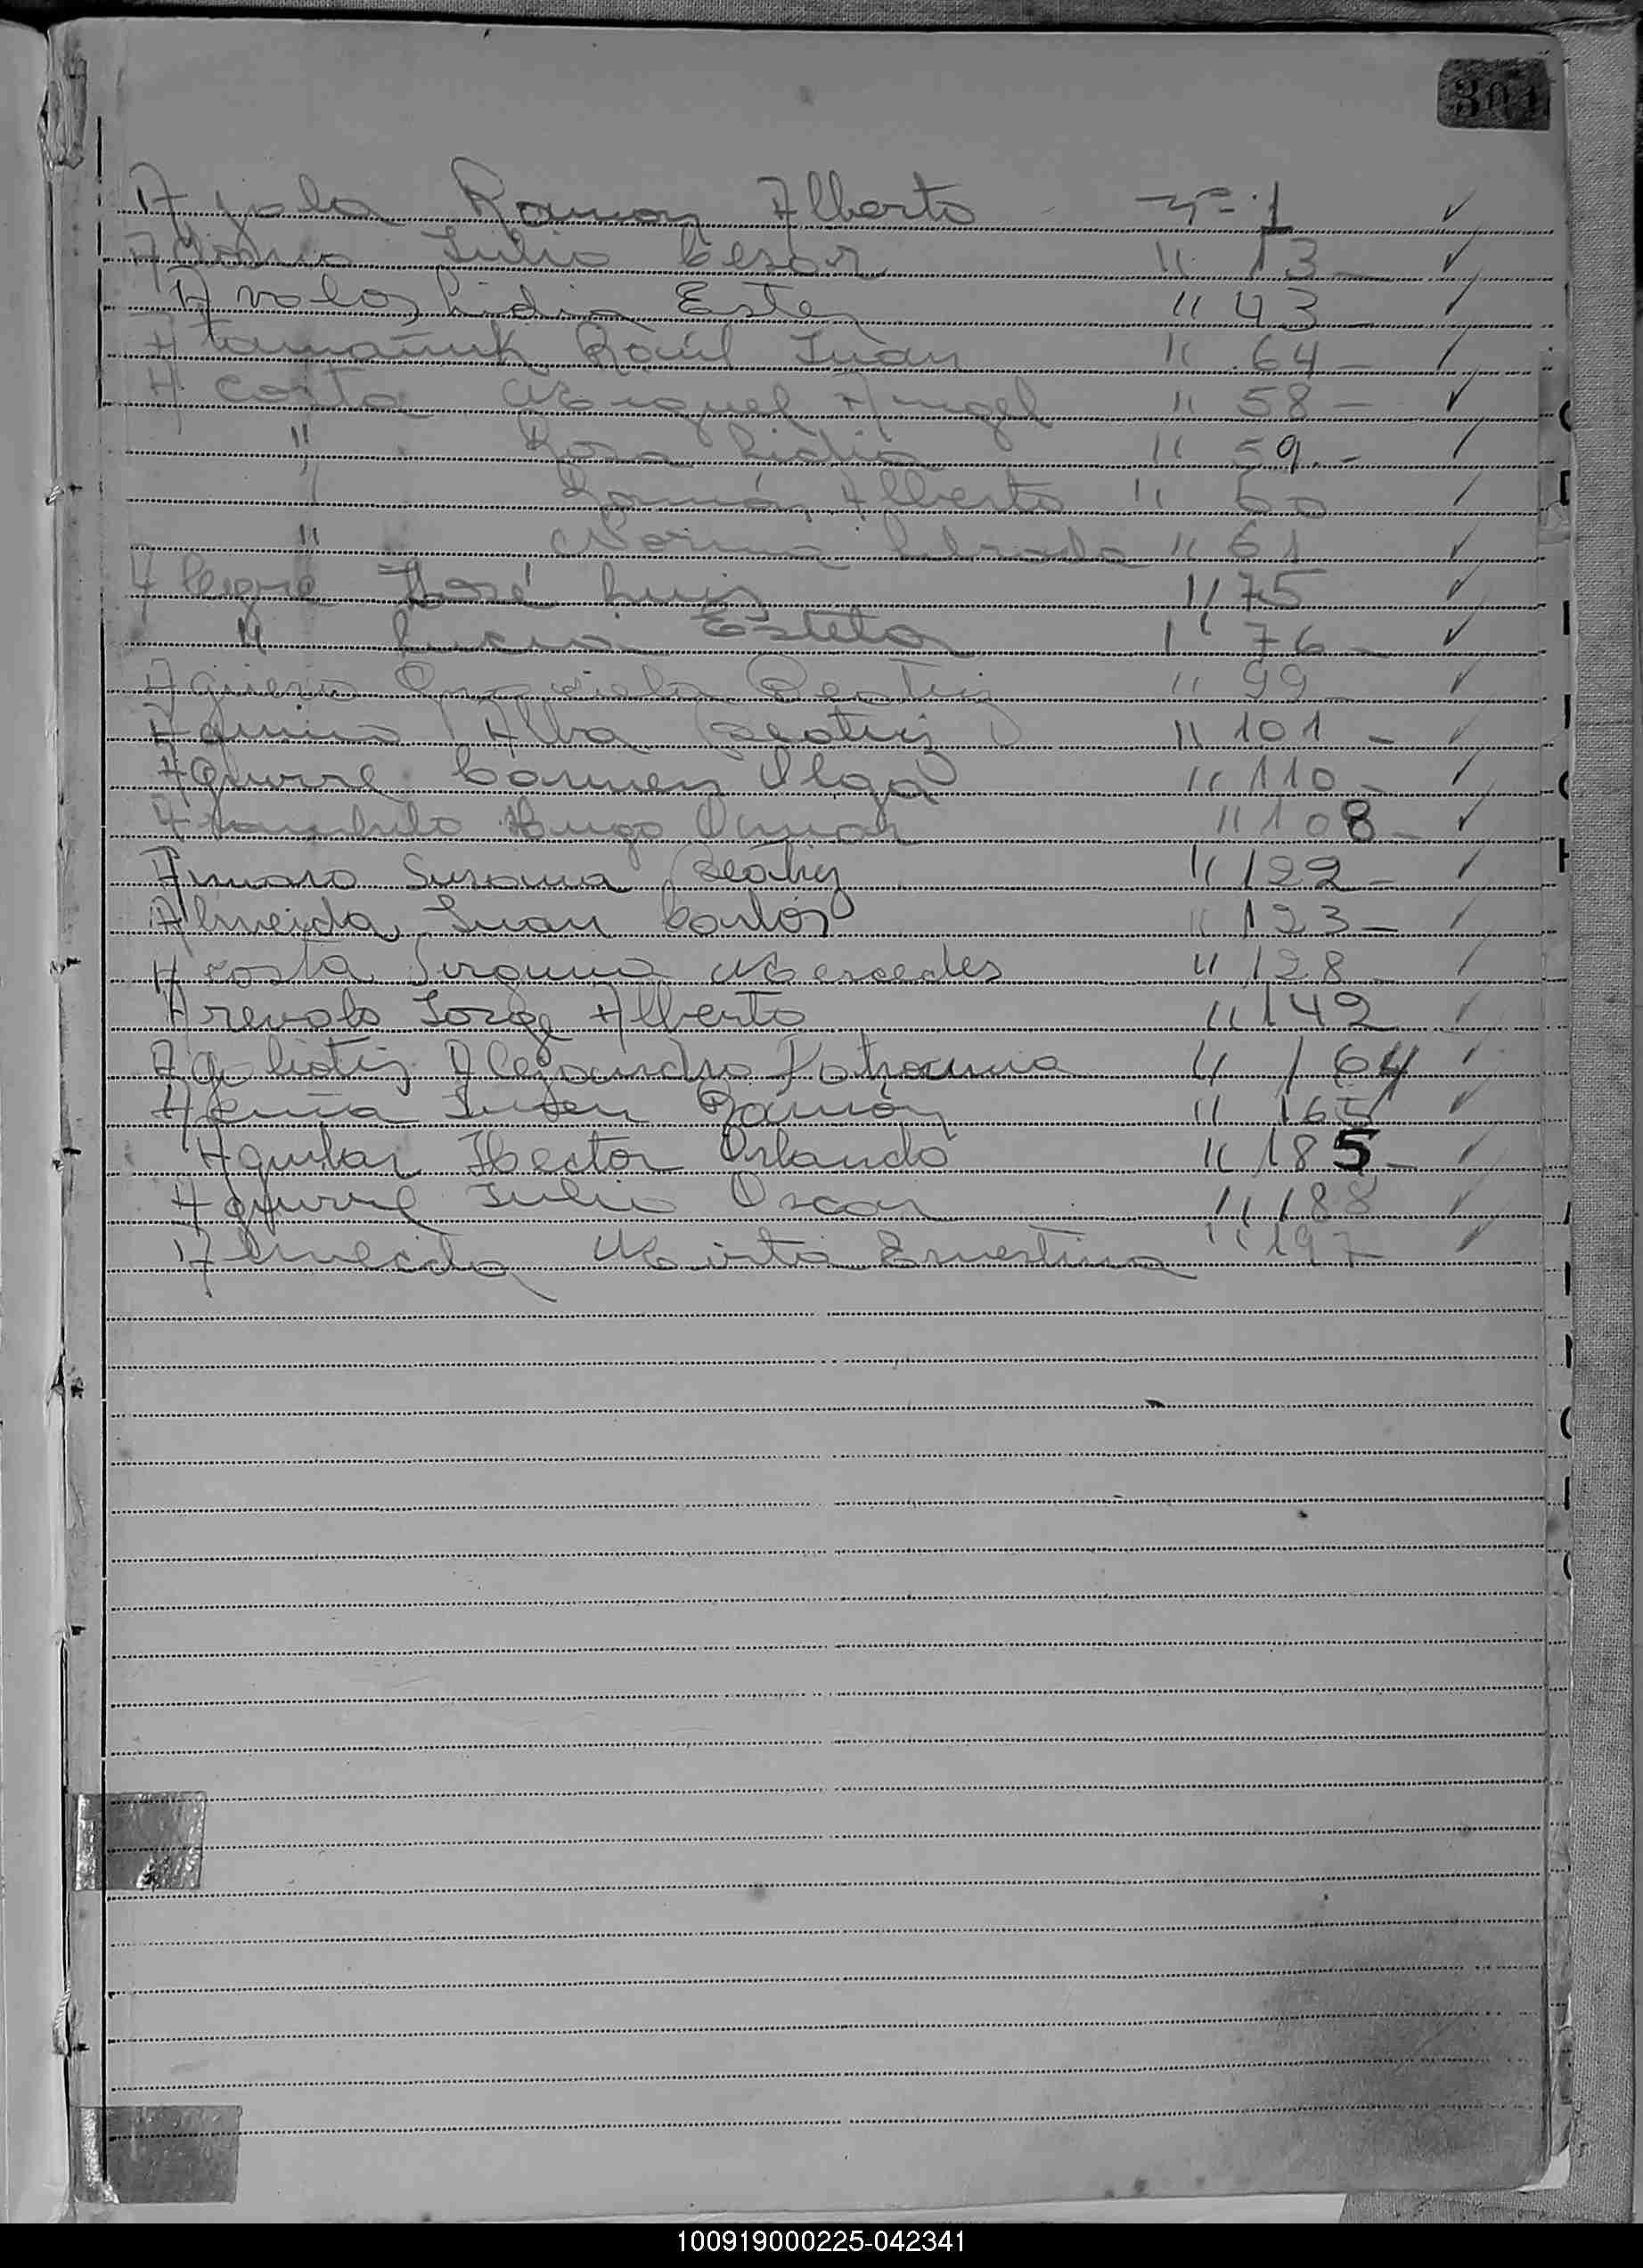 301
Ayala Ramon Alberto nº 1 ✓
Julio Cesar " 13 - ✓
Avalos Lidia Ester " 43 - ✓
Raúl Juan " 64 - ✓
Acosta Miguel Angel " 58 - ✓
" Rosa Lidia " 59. - ✓
" Ramón Alberto " 60 ✓
" Norma Librada " 61 ✓
Alegre José Luis " 75 ✓
" Lucia Estela " 76 - ✓
Agüero Graciela Beatriz " 99 - ✓
Aquino Alba Beatriz " 101 - ✓
Aguirre Carmen Olga " 110 - ✓
Hugo Omar " 108 - ✓
Amaro Susana Beatriz " 122 - ✓
Almeida Juan Carlos " 123 - ✓
Acosta Virginia Mercedes " 128 - ✓
Arevalo Jorge Alberto " 142 ✓
" 164 ✓
Ramón " 165 ✓
Aguilar Hector Orlando " 185 - ✓
Aguirre Julio Oscar " 188 ✓
Almeida Mirta Ernestina " 197 ✓
100919000225-042341